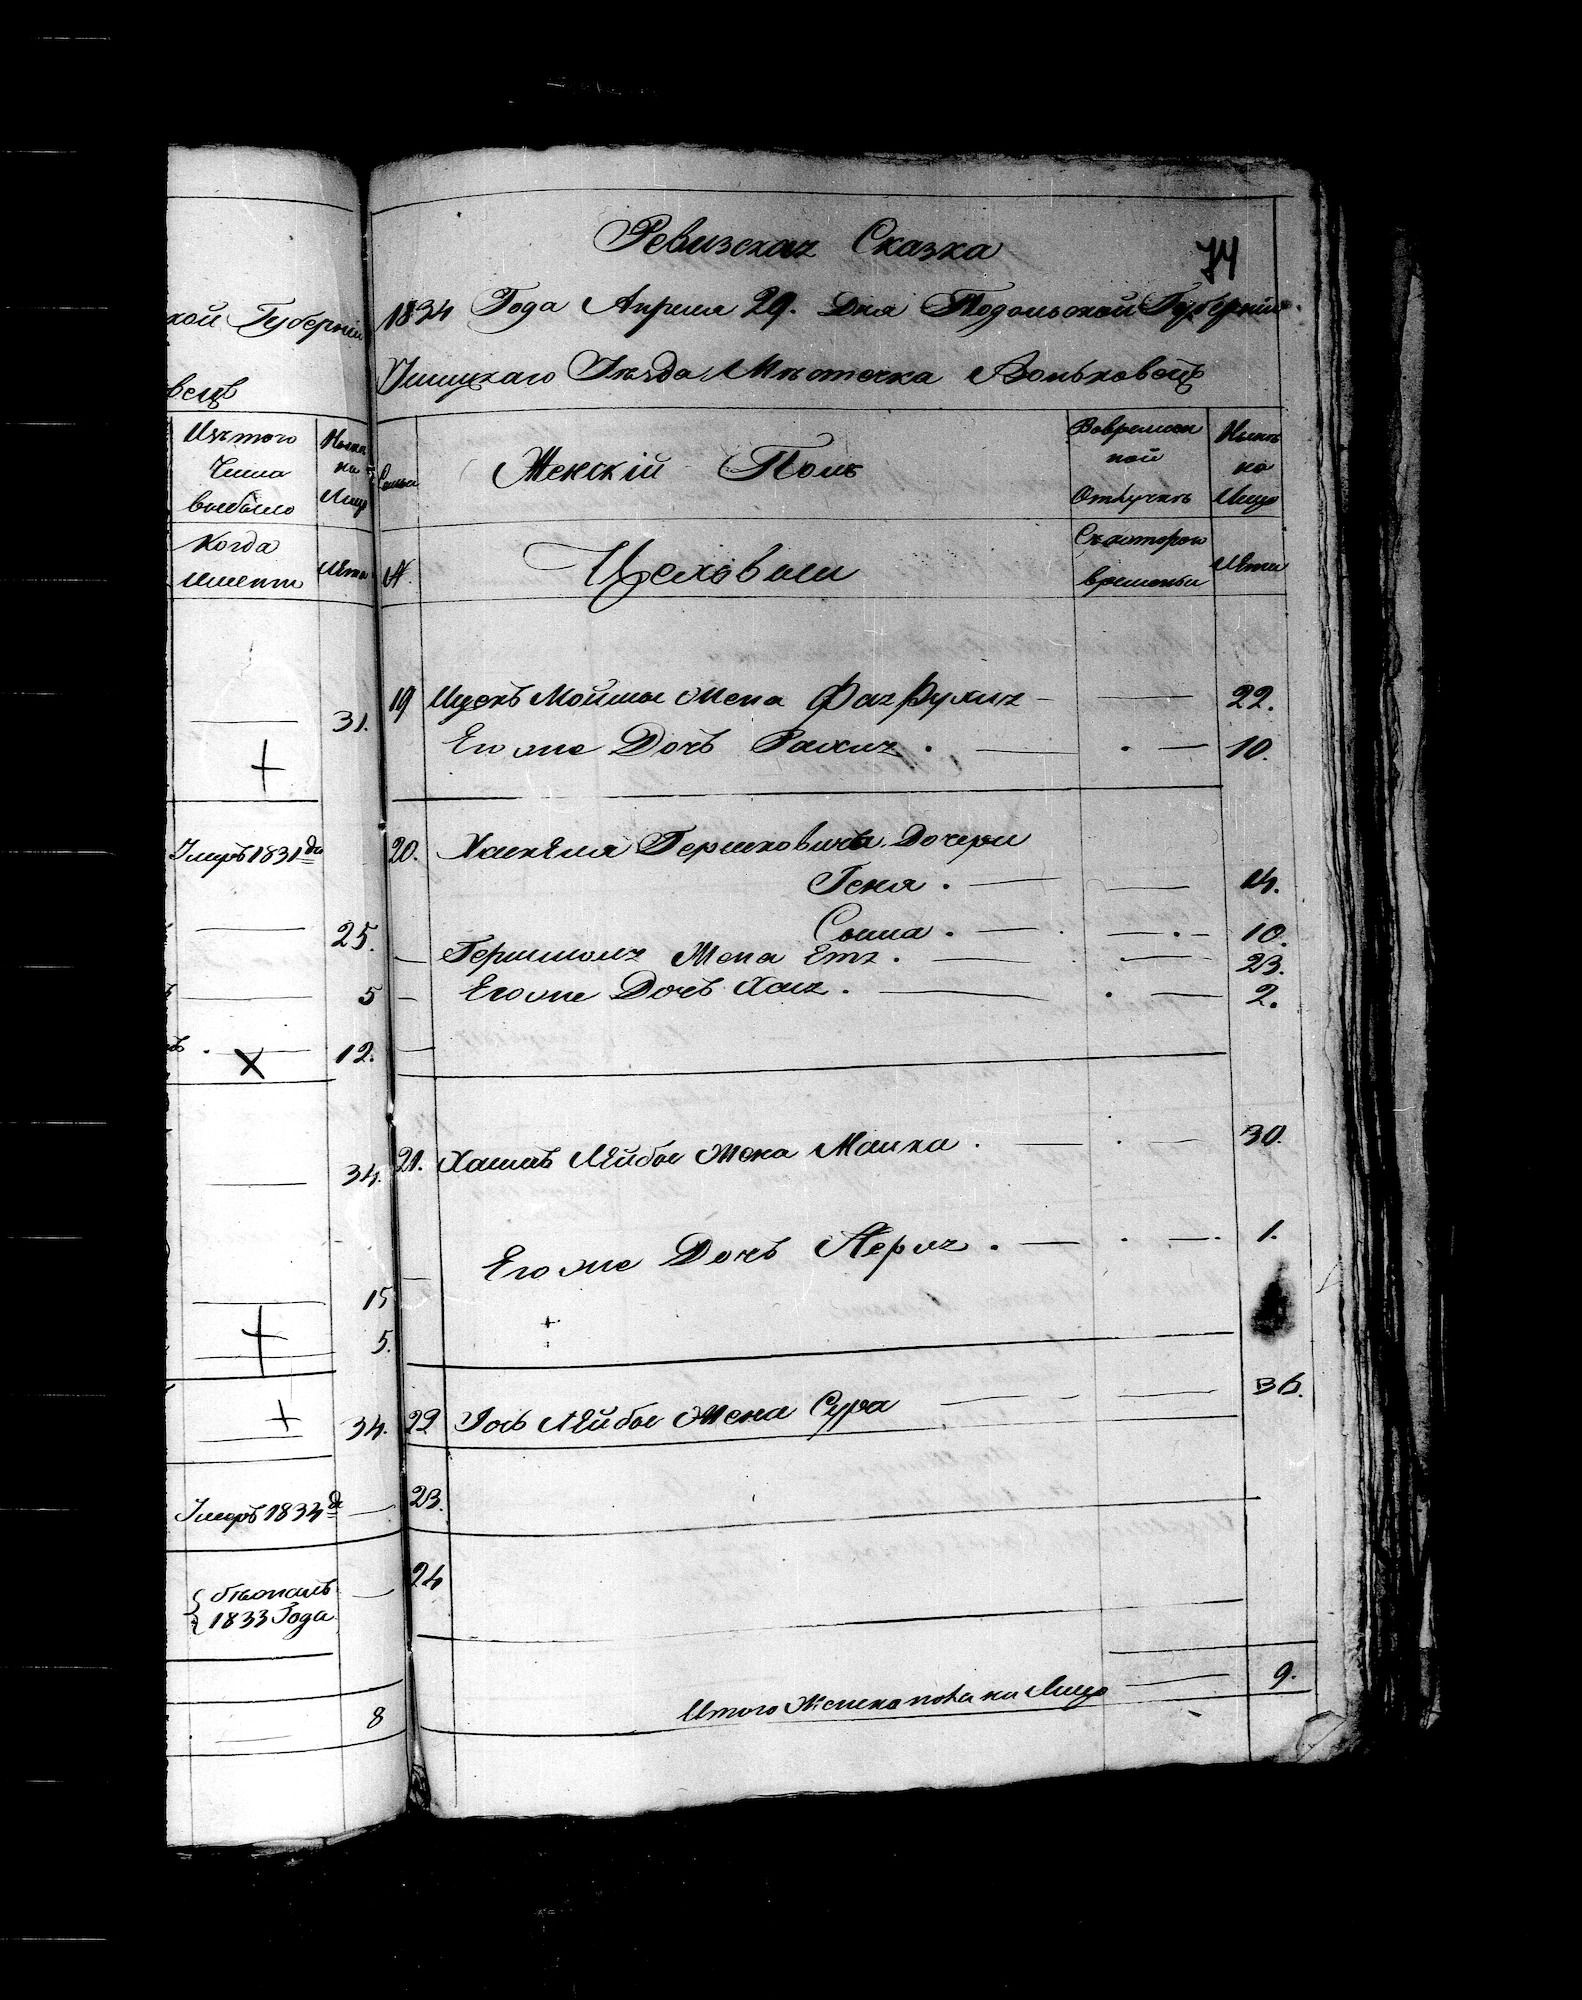 кой Губерніи
вецъ
Изъ того
Числа
выбыло
Ныне
на
Лицо
Когда
именно
Лѣта
31.
Умеръ 1831 да
25.
5
12.
34.
15
5.
34.
Умеръ 1834
бѣжалъ
1833 Года
8
Ревизская Сказка
74
1834 Года Апреля 29. Дня Подольской Губерніи
Ушицкаго Уѣзда Мѣстечка Воньковецъ
Семьи
Женскій Полъ
Вовремен
ной
Отлучкѣ
Ныне
на
Лицо
№.
Цеховыи
Съ которого
временьи
Лѣта
19 Ицекъ Мойшы Жена Фаг Рухля 22.
Его же Дочь Рахля 10.
20. Хаскеля Гершковича Дочери
Геня 14.
Сыма 10.
Гершмоля Жена Етя 23.
Его же Дочь Хая 2.
21. Хаимъ Лейбы Жена Малка 30.
Его же Дочь Перля 1.
22 Іось Лейбы Жена Сура 36.
23.
24
Итого Женска пола на Лицо 9.